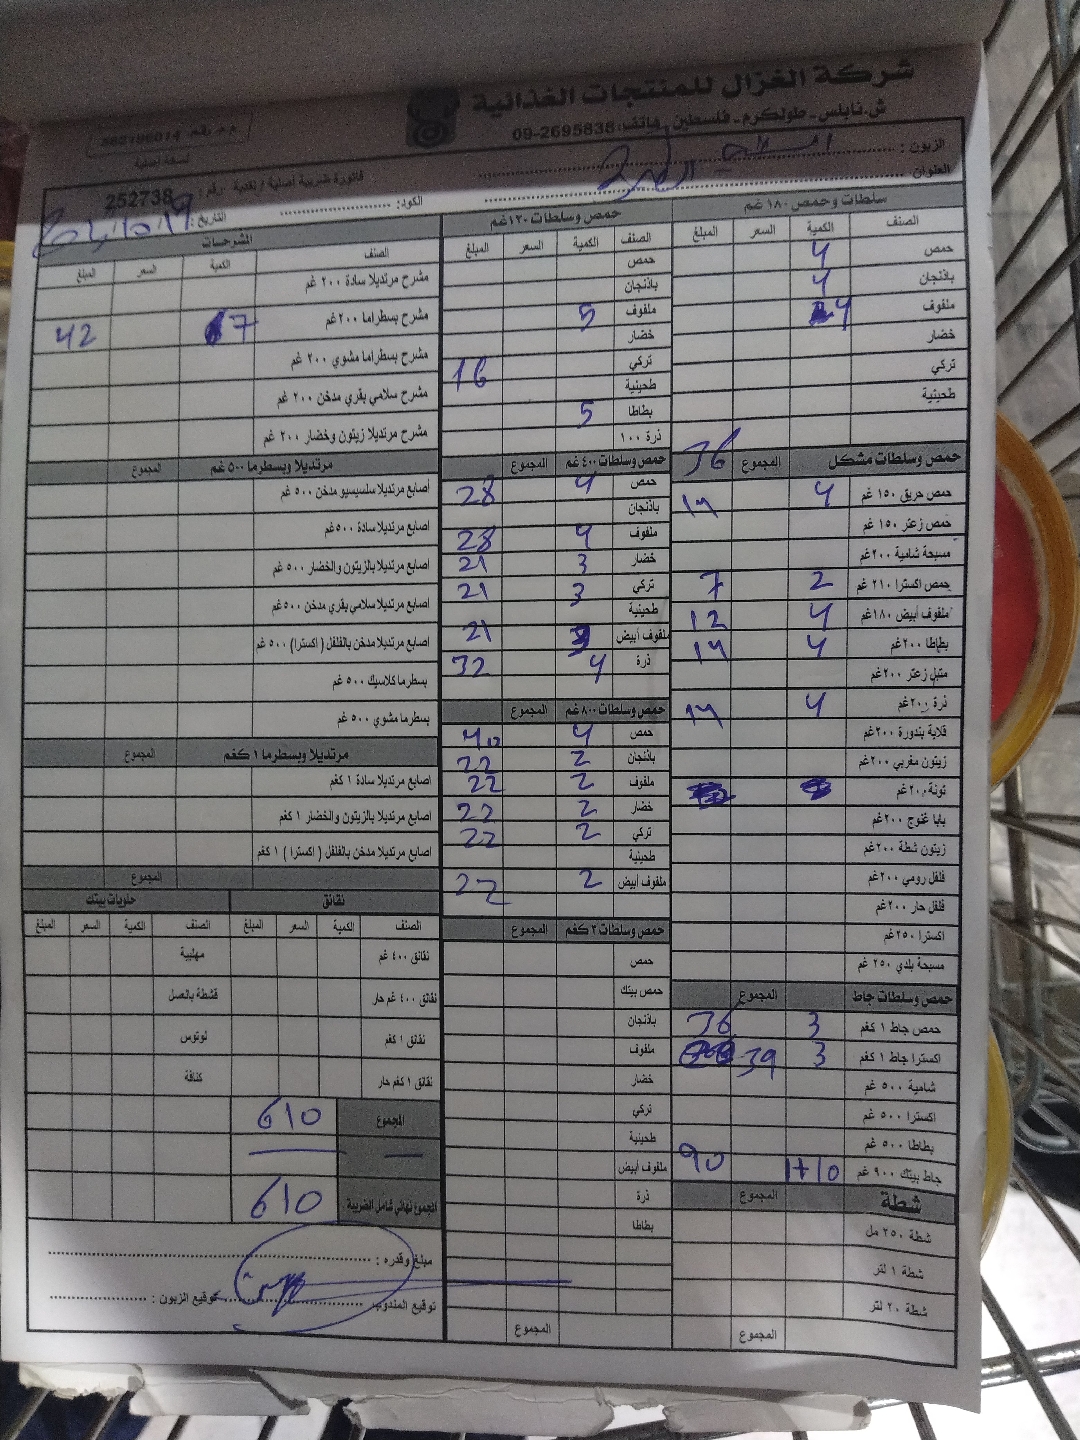 شركة الغزال للمنتجات الغذائية
ش.نابلس - طولكرم - فلسطين هاتف: 2695838-09
نسخة اصلية
الزبون :
العنوان
فاتورة ضريبية اصلية / نقدية رقم: 252738
الكود:
التاريخ:
سلطات وحمص ١٨٠ غم
الصنف الكمية السعر المبلغ
حمص 4
باذنجان 4
ملفوف 4
خضار
تركي
طحينية
36
حمص وسلطات مشكل المجموع
حمص حريق ١٥٠ غم 4 14
حمص زعتر ١٥٠ غم
مسبحة شامية ٢٠٠غم
حمص اكسترا ٢١٠ غم 2 7
ملفوف أبيض ١٨٠غم 4 12
بطاطا ٢٠٠غم 4 14
متبل زعتر ٢٠٠غم
ذرة ٢٠٠غم 4 14
قلاية بندورة ٢٠٠غم
زيتون مغربي ٢٠٠غم
تونة ٢٠٠غم
بابا غنوج ٢٠٠غم
زيتون شطة ٢٠٠غم
فلفل رومي ٢٠٠غم
فلفل حار ٢٠٠غم
اكسترا ٢٥٠غم
مسبحة بلدي ٢٥٠ غم
حمص وسلطات جاط المجموع
حمص جاط ١ كغم 3 36
اكسترا جاط ١ كغم 3 39
شامية ٥٠٠ غم
اكسترا ٥٠٠ غم
بطاطا ٥٠٠ غم
جاط بيتك ٩٠٠ غم 1+10 90
شطة المجموع
شطة ٢٥٠ مل
شطة ١ لتر
شطة ٢٠ لتر
المجموع
حمص وسلطات ١٢٠غم
الصنف الكمية السعر المبلغ
حمص
باذنجان
ملفوف 5
خضار
تركي 16
طحينية
بطاطا 5
ذرة ١٠٠
حمص وسلطات ٤٠٠ غم المجموع
حمص 4 28
باذنجان
ملفوف 4 28
خضار 3 21
تركي 3 21
طحينية
ملفوف أبيض 3 21
ذرة 4 32
حمص وسلطات ٨٠٠ غم المجموع
حمص 4 40
باذنجان 2 22
ملفوف 2 22
خضار 2 22
تركي 2 22
طحينية
ملفوف أبيض 2 22
حمص وسلطات ٢ كغم المجموع
حمص
حمص بيتك
باذنجان
ملفوف
خضار
تركي
طحينية
ملفوف أبيض
ذرة
بطاطا
المجموع
المشرحات
الصنف الكمية السعر المبلغ
مشرح مرتديلا سادة ٢٠٠ غم
مشرح بسطراما ٢٠٠غم 7 42
مشرح بسطراما مشوي ٢٠٠ غم
مشرح سلامي بقري مدخن ٢٠٠ غم
مشرح مرتديلا زيتون وخضار ٢٠٠ غم
مرتديلا وبسطرما ٥٠٠ غم المجموع
أصابع مرتديلا سلسيسيو مدخن ٥٠٠ غم
اصابع مرتديلا سادة ٥٠٠غم
اصابع مرتديلا بالزيتون والخضار ٥٠٠ غم
اصابع مرتديلا سلامي بقري مدخن ٥٠٠غم
اصابع مرتديلا مدخن بالفلفل ( اكسترا) ٥٠٠ غم
بسطرما كلاسيك ٥٠٠ غم
بسطرما مشوي ٥٠٠ غم
مرتديلا وبسطرما ١ كغم المجموع
اصابع مرتديلا سادة ١ كغم
اصابع مرتديلا بالزيتون والخضار ١ كغم
اصابع مرتديلا مدخن بالفلفل ( اكسترا ) ١ كغم
المجموع
نقانق حلويات بيتك
الصنف الكمية السعر المبلغ الصنف الكمية السعر المبلغ
نقانق ٤٠٠ غم مهلبية
نقانق ٤٠٠ غم حار قشطة بالعسل
نقانق ١ كغم لوتوس
نقانق ١ كغم حار كنافة
المجموع 610
المجموع نهائي شامل الضريبة 610
مبلغ وقدره :
توقيع المندوب توقيع الزبون :